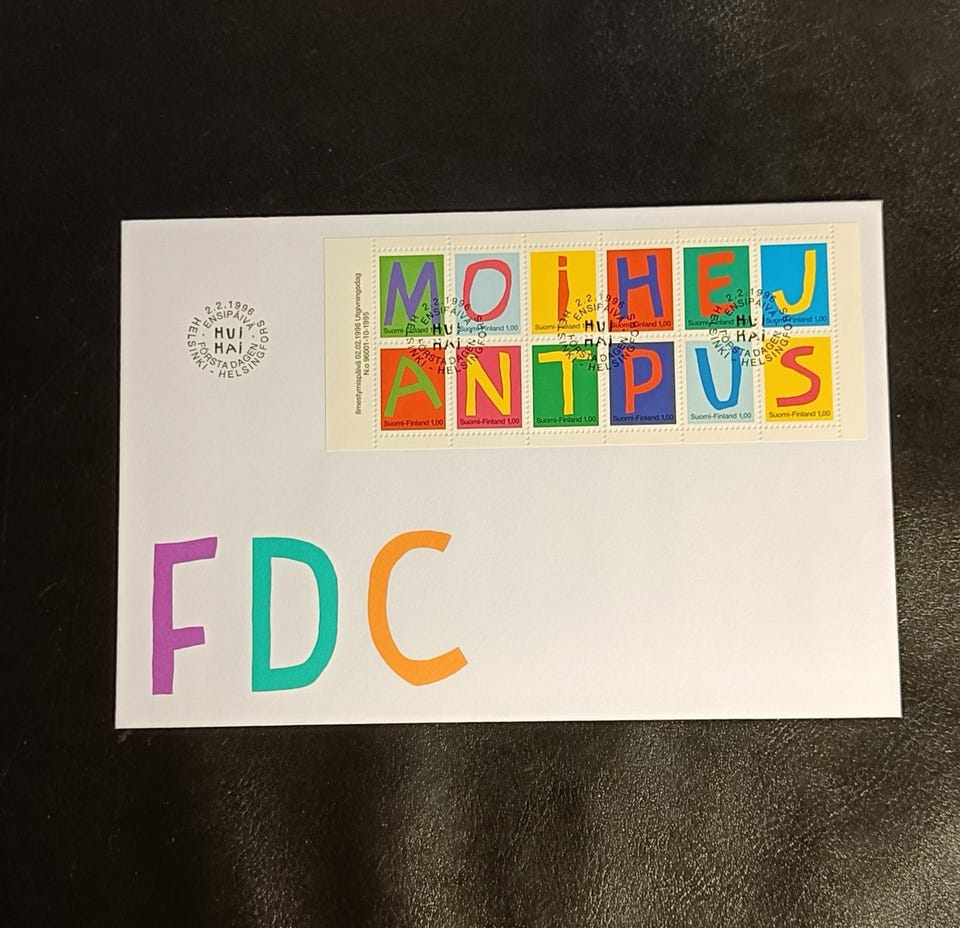 2.2.1996
ENSIPÄIVÄ
HUI
HAI
FÖRSTA DAGEN
HELSINKI - HELSINGFORS
Ilmestymispäivä 02.02.1996 Utgivningsdag
N:o 96001-10-1995
M O i H E J
Suomi-Finland 1,00 Suomi-Finland 1,00 Suomi-Finland 1,00 Suomi-Finland 1,00 Suomi-Finland 1,00 Suomi-Finland 1,00
2.2.1996 2.2.1996 2.2.1996
ENSIPÄIVÄ ENSIPÄIVÄ ENSIPÄIVÄ
HUI HUI HUI
HAI HAI HAI
FÖRSTA DAGEN FÖRSTA DAGEN FÖRSTA DAGEN
HELSINKI - HELSINGFORS HELSINKI - HELSINGFORS HELSINKI - HELSINGFORS
A N T P U S
Suomi-Finland 1,00 Suomi-Finland 1,00 Suomi-Finland 1,00 Suomi-Finland 1,00 Suomi-Finland 1,00 Suomi-Finland 1,00
FDC